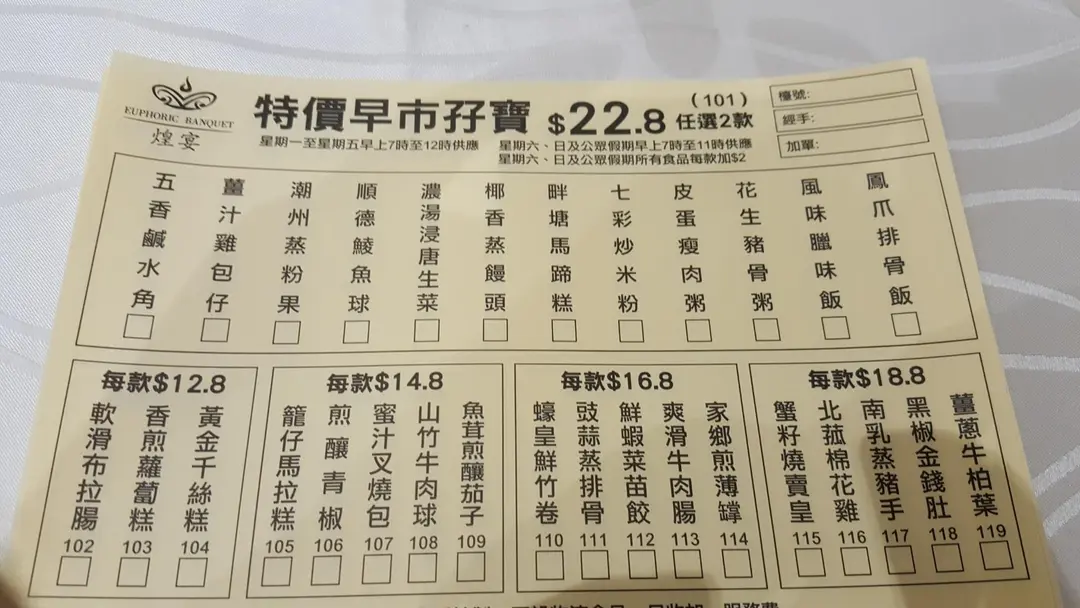 EUPHORIC BANQUET
煌宴
特價早市孖寶 $22.8 (101) 任選2款
星期一至星期五早上7時至12時供應
星期六、日及公眾假期早上7時至11時供應
星期六、日及公眾假期所有食品每款加$2
檯號:
經手:
加單:
五香鹹水角
薑汁雞包仔
潮州蒸粉果
順德鯪魚球
濃湯浸唐生菜
椰香蒸饅頭
畔塘馬蹄糕
七彩炒米粉
皮蛋瘦肉粥
花生豬骨粥
風味臘味飯
鳳爪排骨飯
每款$12.8
軟滑布拉腸 102
香煎蘿蔔糕 103
黃金千絲糕 104
每款$14.8
籠仔馬拉糕 105
煎釀青椒 106
蜜汁叉燒包 107
山竹牛肉球 108
魚茸煎釀茄子 109
每款$16.8
蠔皇鮮竹卷 110
豉蒜蒸排骨 111
鮮蝦菜苗餃 112
爽滑牛肉腸 113
家鄉煎薄罉 114
每款$18.8
蟹籽燒賣皇 115
北菰棉花雞 116
南乳蒸豬手 117
黑椒金錢肚 118
薑蔥牛柏葉 119